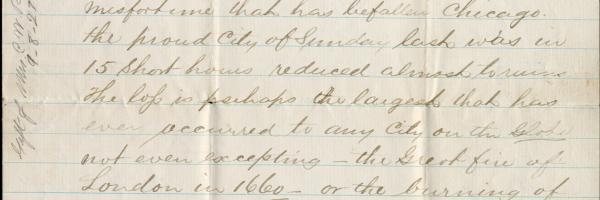 misfortune that has befallen Chicago.
the proud City of Sunday last was in
15 Short hours reduced almost to ruins
The loss is perhaps the largest that has
ever occurred to any City on the Globe
not even excepting - the Great fire of
London in 1660 - or the burning of
Gift of
9-8-27